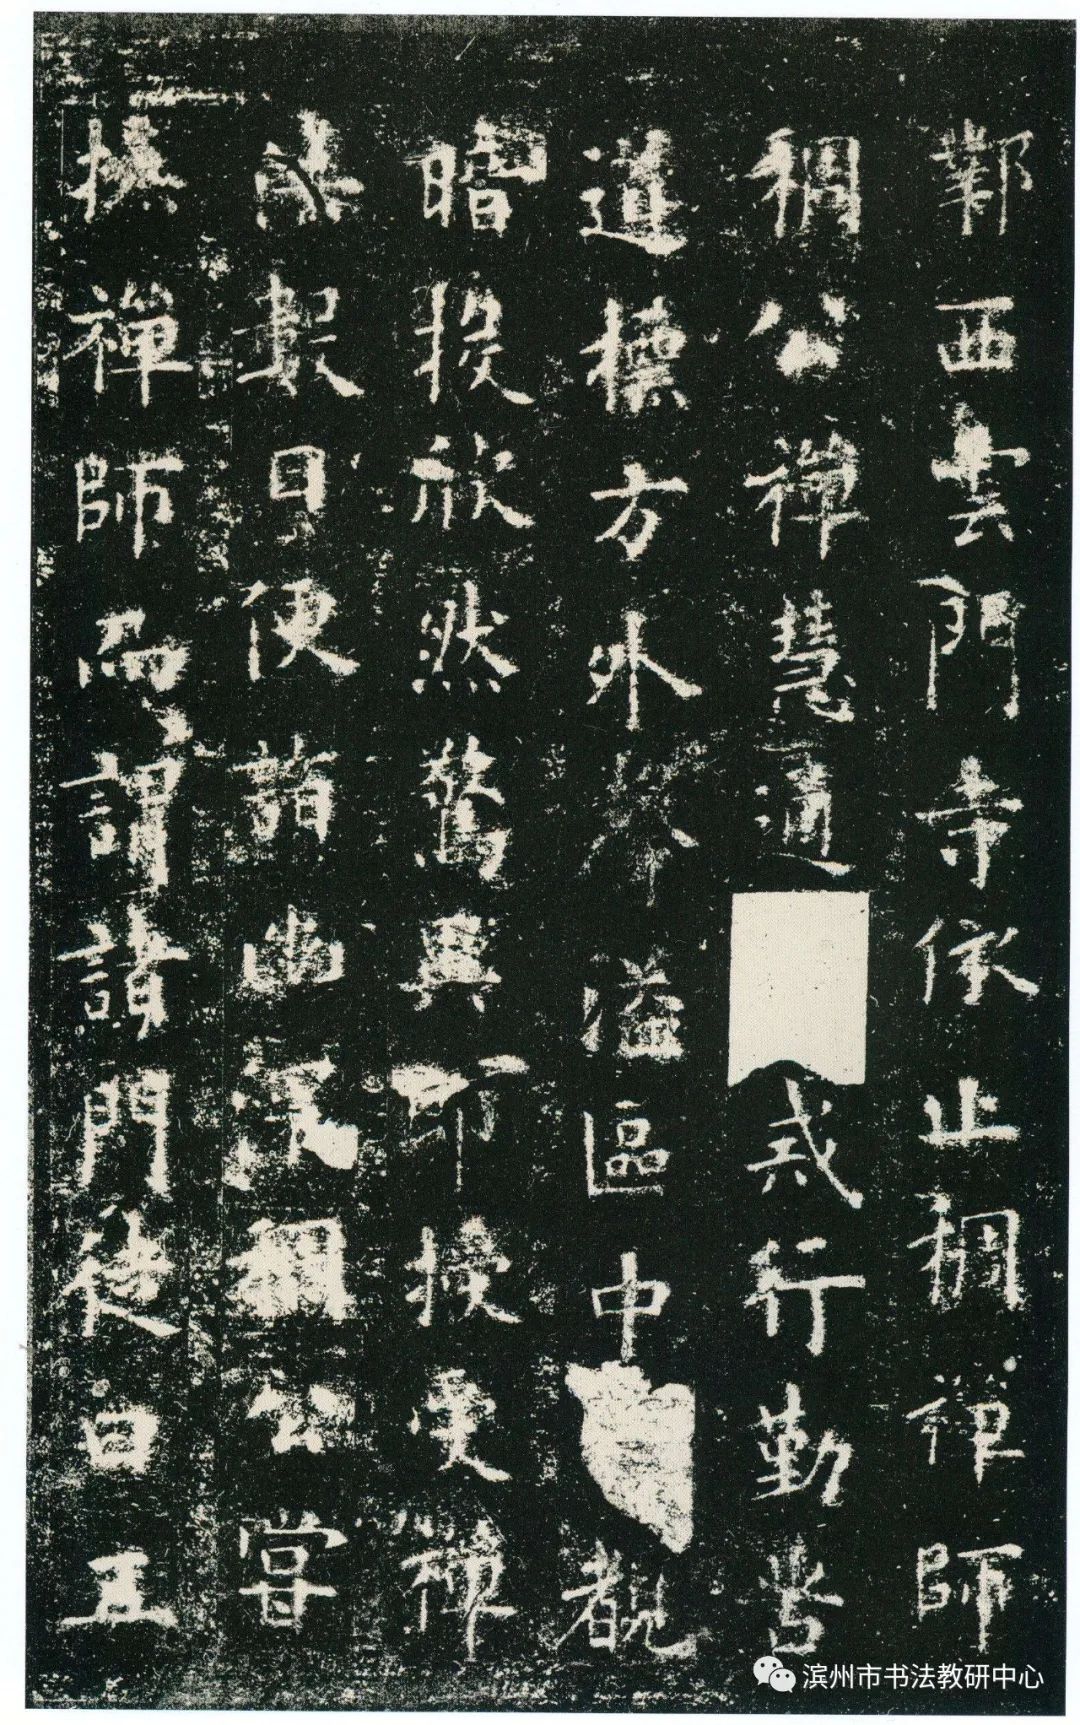 鄴西雲門寺依止稠禪師
稠公禪慧通戒行勤苦
道標方外溢區中觀
暗投欣然驚異即授受禪
法數日便詣幽深稠公嘗
撫禪師而謂諸門徒曰五
滨州市书法教研中心